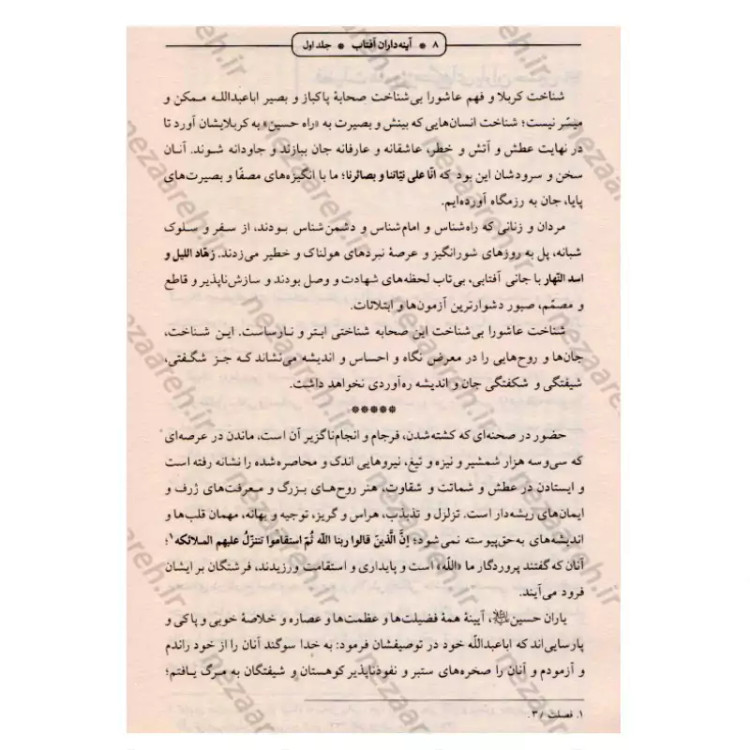 ۸ * آینه‌داران آفتاب * جلد اول
شناخت کربلا و فهم عاشورا بی‌شناخت صحابهٔ پاکباز و بصیر اباعبدالله ممکن و
میسّر نیست؛ شناخت انسان‌هایی که بینش و بصیرت به «راه حسین» به کربلایشان آورد تا
در نهایت عطش و آتش و خطر، عاشقانه و عارفانه جان ببازند و جاودانه شوند. آنان
سخن و سرودشان این بود که انّا علی نیّاتنا و بصائرنا؛ ما با انگیزه‌های مصفّا و بصیرت‌های
پایا، جان به رزمگاه آورده‌ایم.
مردان و زنانی که راه‌شناس و امام‌شناس و دشمن‌شناس بودند، از سفر و سلوک
شبانه، پل به روزهای شورانگیز و عرصهٔ نبردهای هولناک و خطیر می‌زدند. زهّاد اللیل و
اسد النّهار با جانی آفتابی، بی‌تاب لحظه‌های شهادت و وصل بودند و سازش‌ناپذیر و قاطع
و مصمّم، صبور دشوارترین آزمون‌ها و ابتلائات.
شناخت عاشورا بی‌شناخت این صحابه شناختی ابتر و نارساست. این شناخت،
جان‌ها و روح‌هایی را در معرض نگاه و احساس و اندیشه می‌نشاند که جز شگفتی،
شیفتگی و شکفتگی جان و اندیشه ره‌آوردی نخواهد داشت.
*****
حضور در صحنه‌ای که کشته‌شدن، فرجام و انجام ناگزیر آن است، ماندن در عرصه‌ای
که سی‌وسه هزار شمشیر و نیزه و تیغ، نیروهایی اندک و محاصره‌شده را نشانه رفته است
و ایستادن در عطش و شماتت و شقاوت، هنر روح‌های بزرگ و معرفت‌های ژرف و
ایمان‌های ریشه‌دار است. تزلزل و تذبذب، هراس و گریز، توجیه و بهانه، مهمان قلب‌ها و
اندیشه‌های به‌حق‌پیوسته نمی‌شود؛ إنَّ الَّذینَ قالوا ربنا اللّه ثُمّ استقاموا تتنزّلُ علیهم الملائکه۱؛
آنان که گفتند پروردگار ما «اللّه» است و پایداری و استقامت ورزیدند، فرشتگان بر ایشان
فرود می‌آیند.
یاران حسین﷼، آیینهٔ همهٔ فضیلت‌ها و عظمت‌ها و عصاره و خلاصهٔ خوبی و پاکی و
پارسایی‌اند که اباعبداللّه خود در توصیفشان فرمود: به خدا سوگند آنان را از خود راندم
و آزمودم و آنان را صخره‌های ستبر و نفوذناپذیر کوهستان و شیفتگان به مرگ یافتم؛
۱. فصلت / ۳۰.
nezaareh.ir